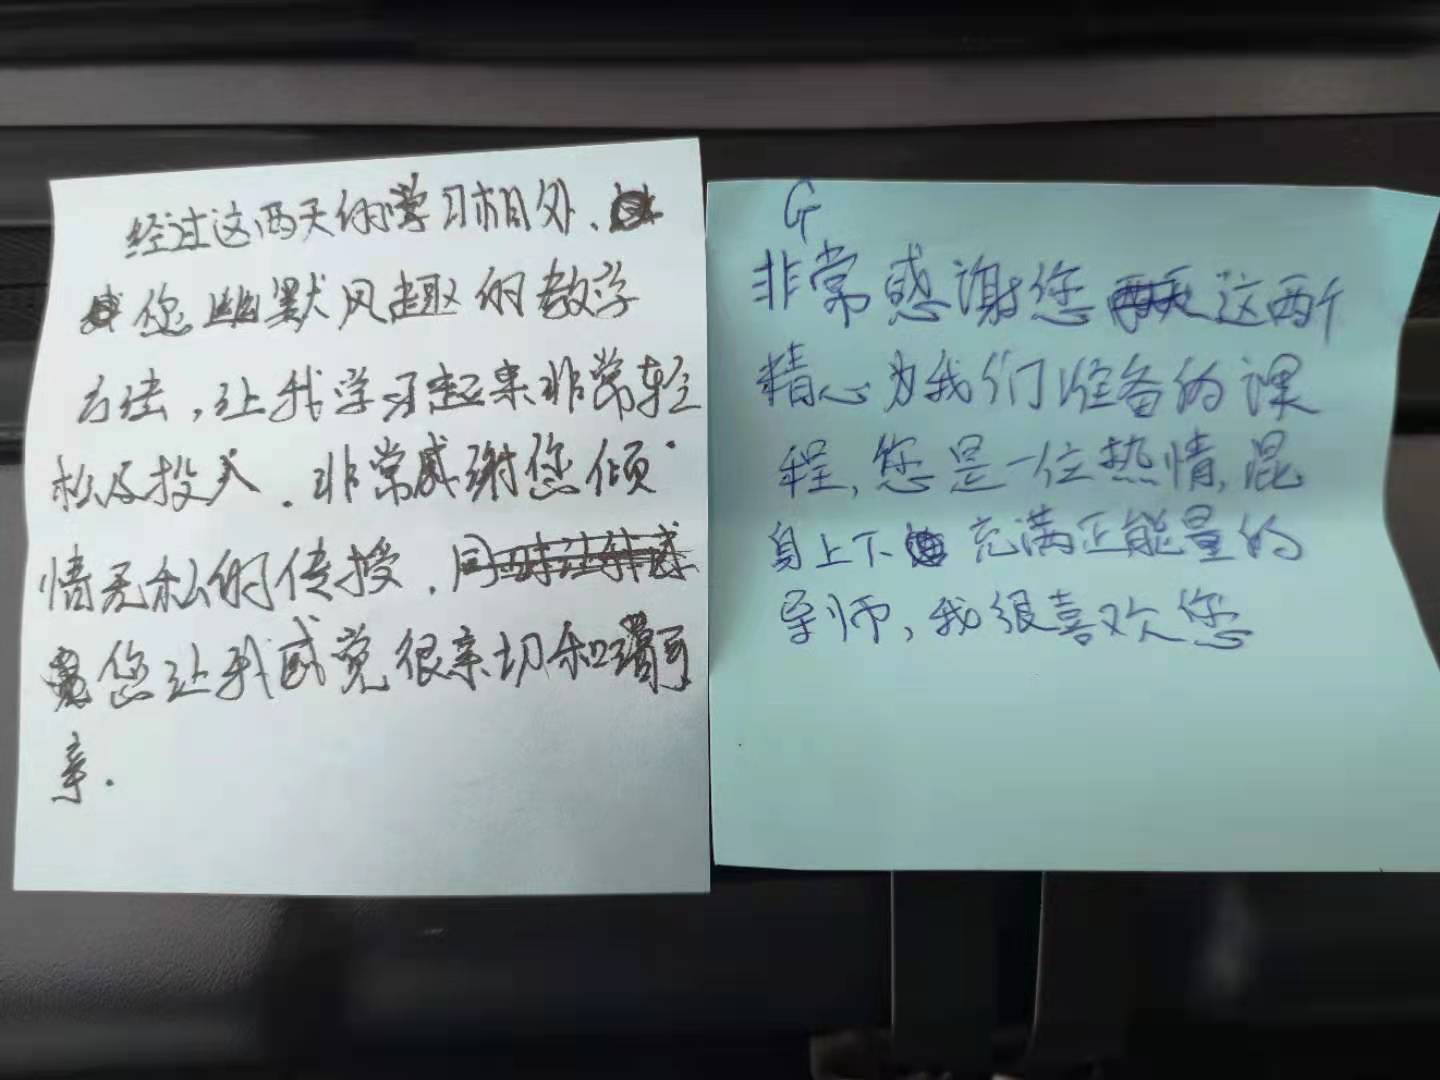 经过这两天的学习相处、
您幽默风趣的教学
方法，让我学习起来非常轻
松及投入．非常感谢您倾
情无私的传授．同
您让我感觉很亲切和
亲．
G
非常感谢您这两个
精心为我们准备的课
程，您是一位热情，混
身上下充满正能量的
导师，我很喜欢您